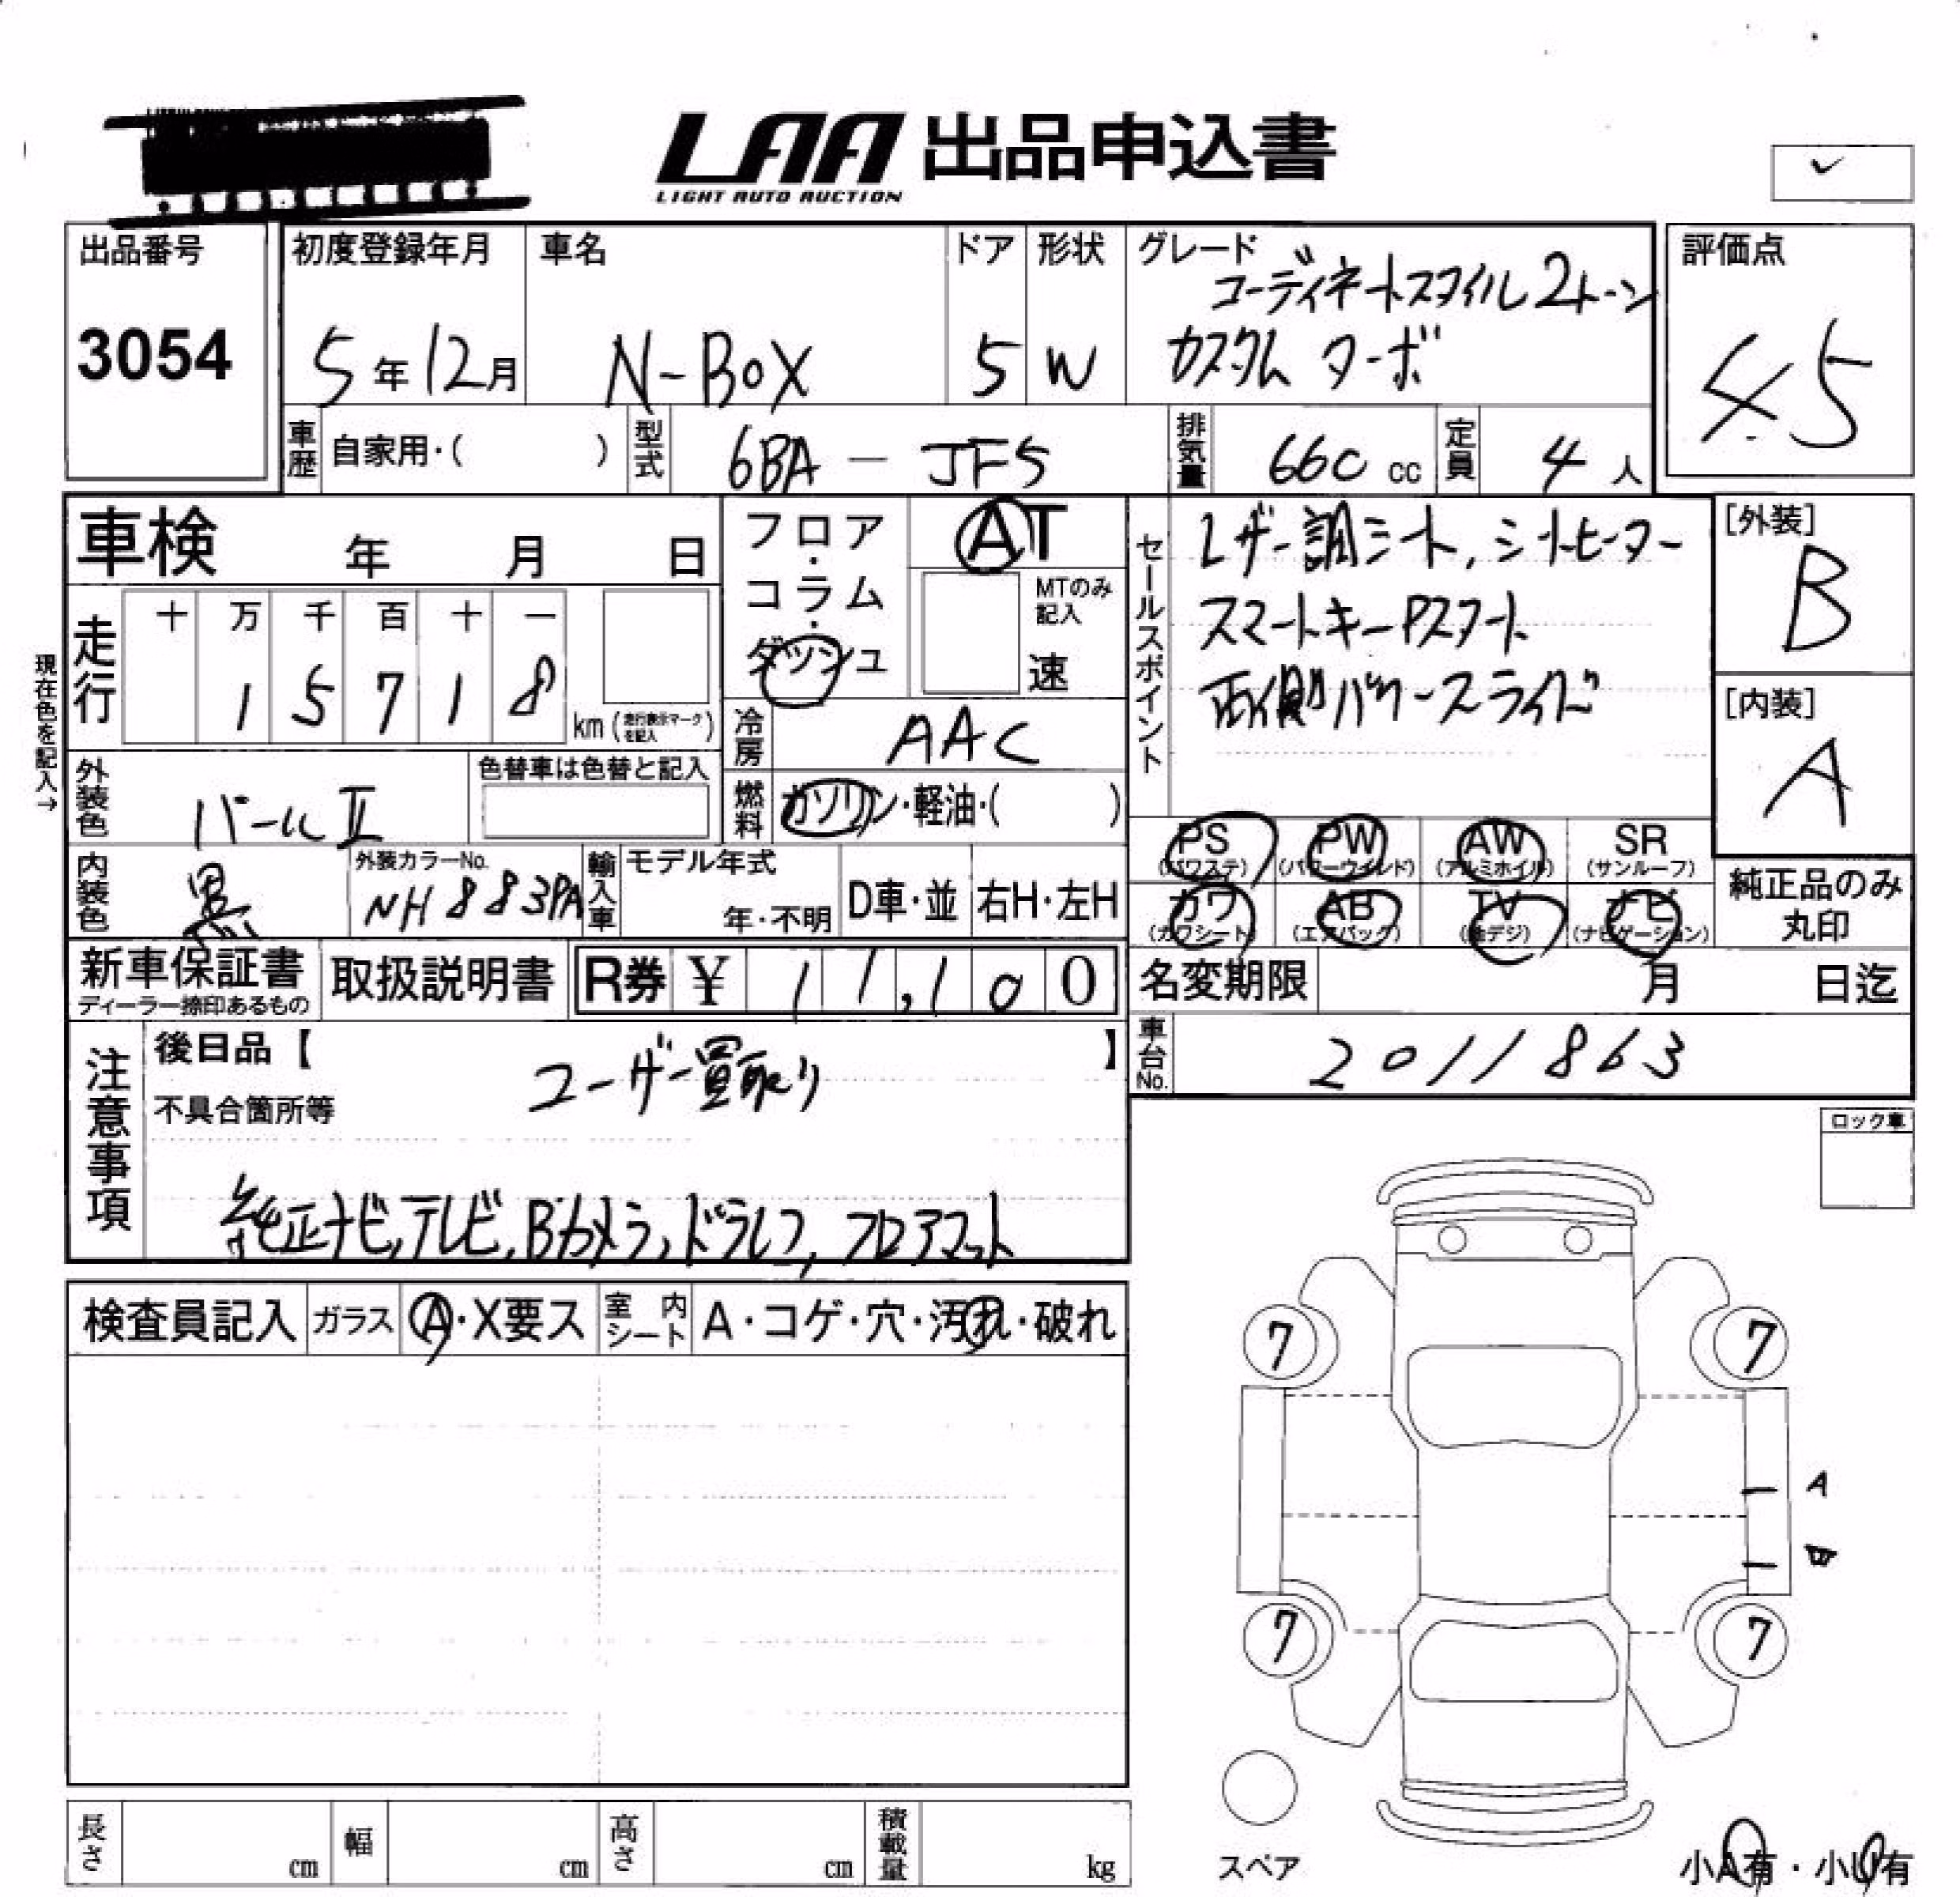 LAA 出品申込書
LIGHT AUTO AUCTION
出品番号
3054
初度登録年月
5年12月
車名
N-BOX
ドア
5
形状
W
グレード
コーディネートスタイル2トーン
カスタム ターボ
評価点
4.5
車歴 自家用・( )
型式 6BA-JF5
排気量 660 cc
定員 4人
車検 年 月 日
走行
十 万 千 百 十 一
1 5 7 1 8
km(走行表示マークを記入)
現在色を記入→
フロア・コラム・ダッシュ
AT
MTのみ記入
速
冷房 AAC
燃料 ガソリン・軽油・( )
セールスポイント
レザー調シート,シートヒーター
スマートキーPスタート
両側パワースライド
[外装]
B
[内装]
A
外装色 パールⅡ
色替車は色替と記入
内装色 黒
外装カラーNo.
NH883PA
輸入車
モデル年式
年・不明
D車・並
右H・左H
PS (パワステ)
PW (パワーウインド)
AW (アルミホイル)
SR (サンルーフ)
カワ (カワシート)
AB (エアバック)
TV (地デジ)
ナビ (ナビゲーション)
純正品のみ
丸印
新車保証書
ディーラー捺印あるもの
取扱説明書
R券 ¥ 11,100
名変期限 月 日迄
車台No. 2011863
注意事項
後日品【 】
ユーザー買取り
不具合箇所等
純正ナビ,テレビ,Bカメラ,ドラレコ,フロアマット
ロック車
検査員記入
ガラス A・X要ス
室内シート A・コゲ・穴・汚れ・破れ
7 7
A
7 7
スペア
長さ cm
幅 cm
高さ cm
積載量 kg
小A有・小U有